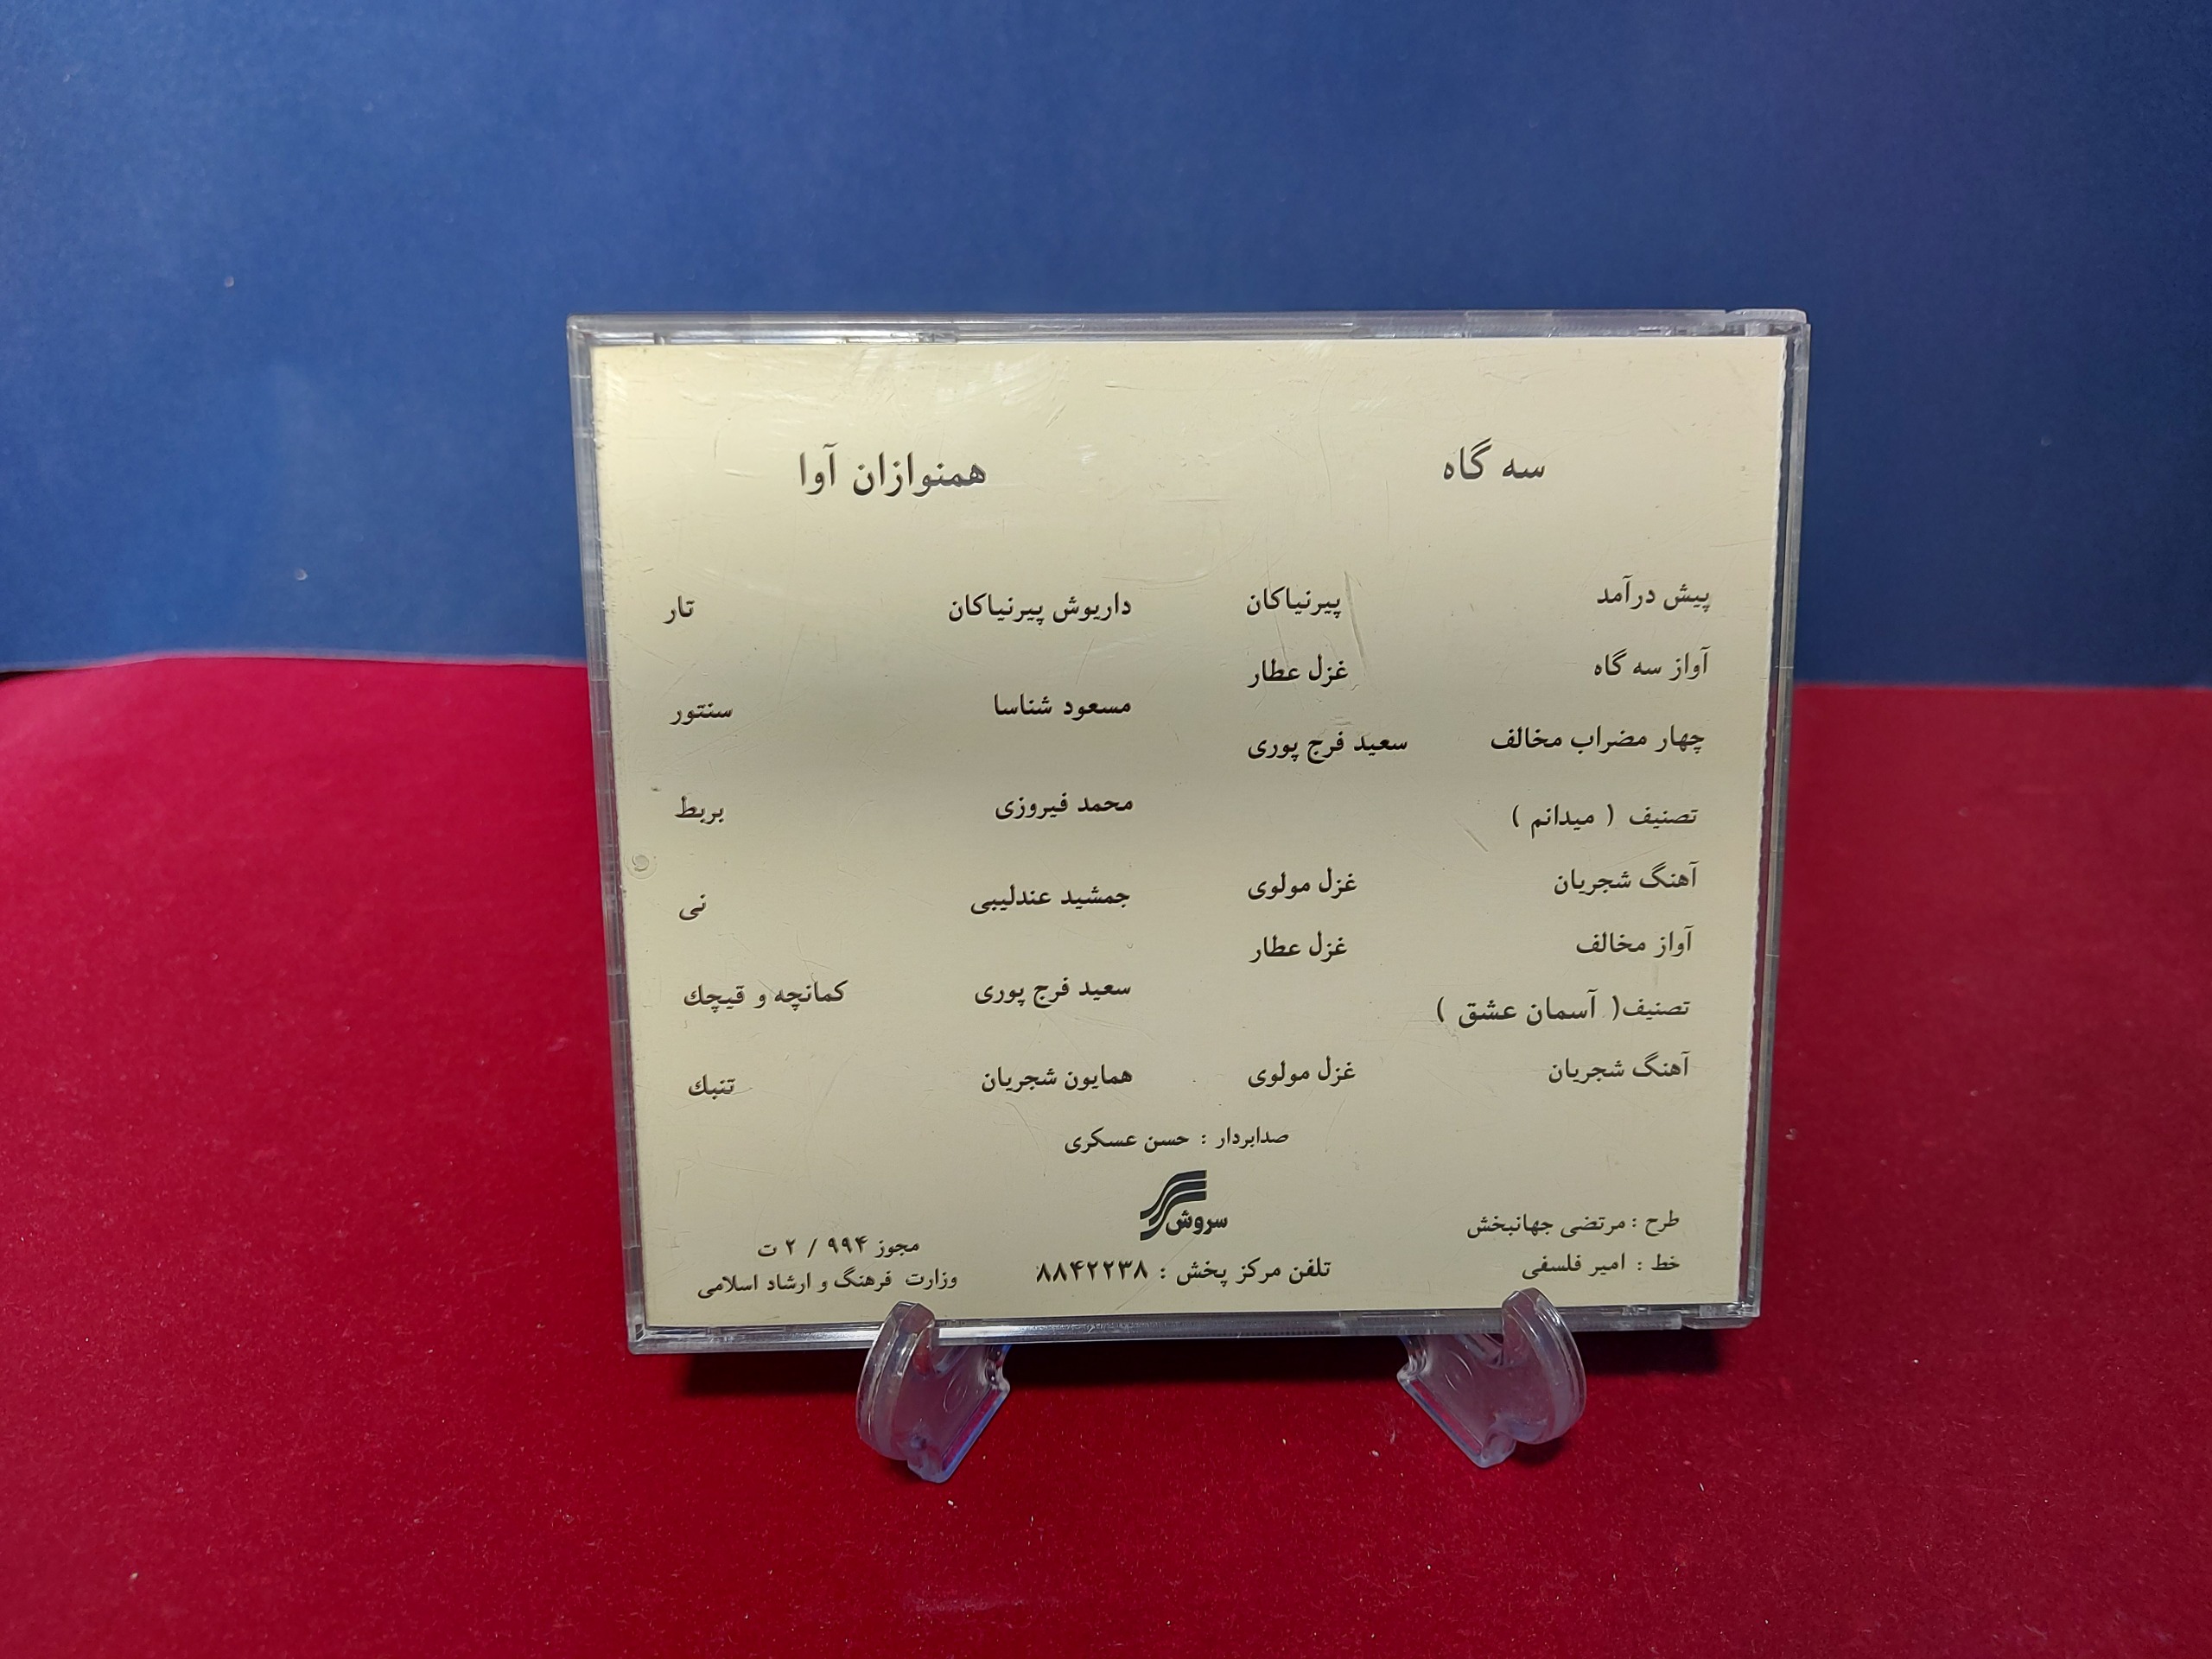 سه گاه
پیش درآمد پیرنیاکان
آواز سه گاه غزل عطار
چهار مضراب مخالف سعید فرج پوری
تصنیف ( میدانم )
آهنگ شجریان غزل مولوی
آواز مخالف غزل عطار
تصنیف( آسمان عشق )
آهنگ شجریان غزل مولوی
همنوازان آوا
داریوش پیرنیاکان تار
مسعود شناسا سنتور
محمد فیروزی بربط
جمشید عندلیبی نی
سعید فرج پوری کمانچه و قیچك
همایون شجریان تنبك
صدابردار : حسن عسکری
سروش
طرح : مرتضی جهانبخش
خط : امیر فلسفی
تلفن مرکز پخش : ۸۸۴۲۲۳۸
مجوز ۹۹۴ / ۲ ت
وزارت فرهنگ و ارشاد اسلامی